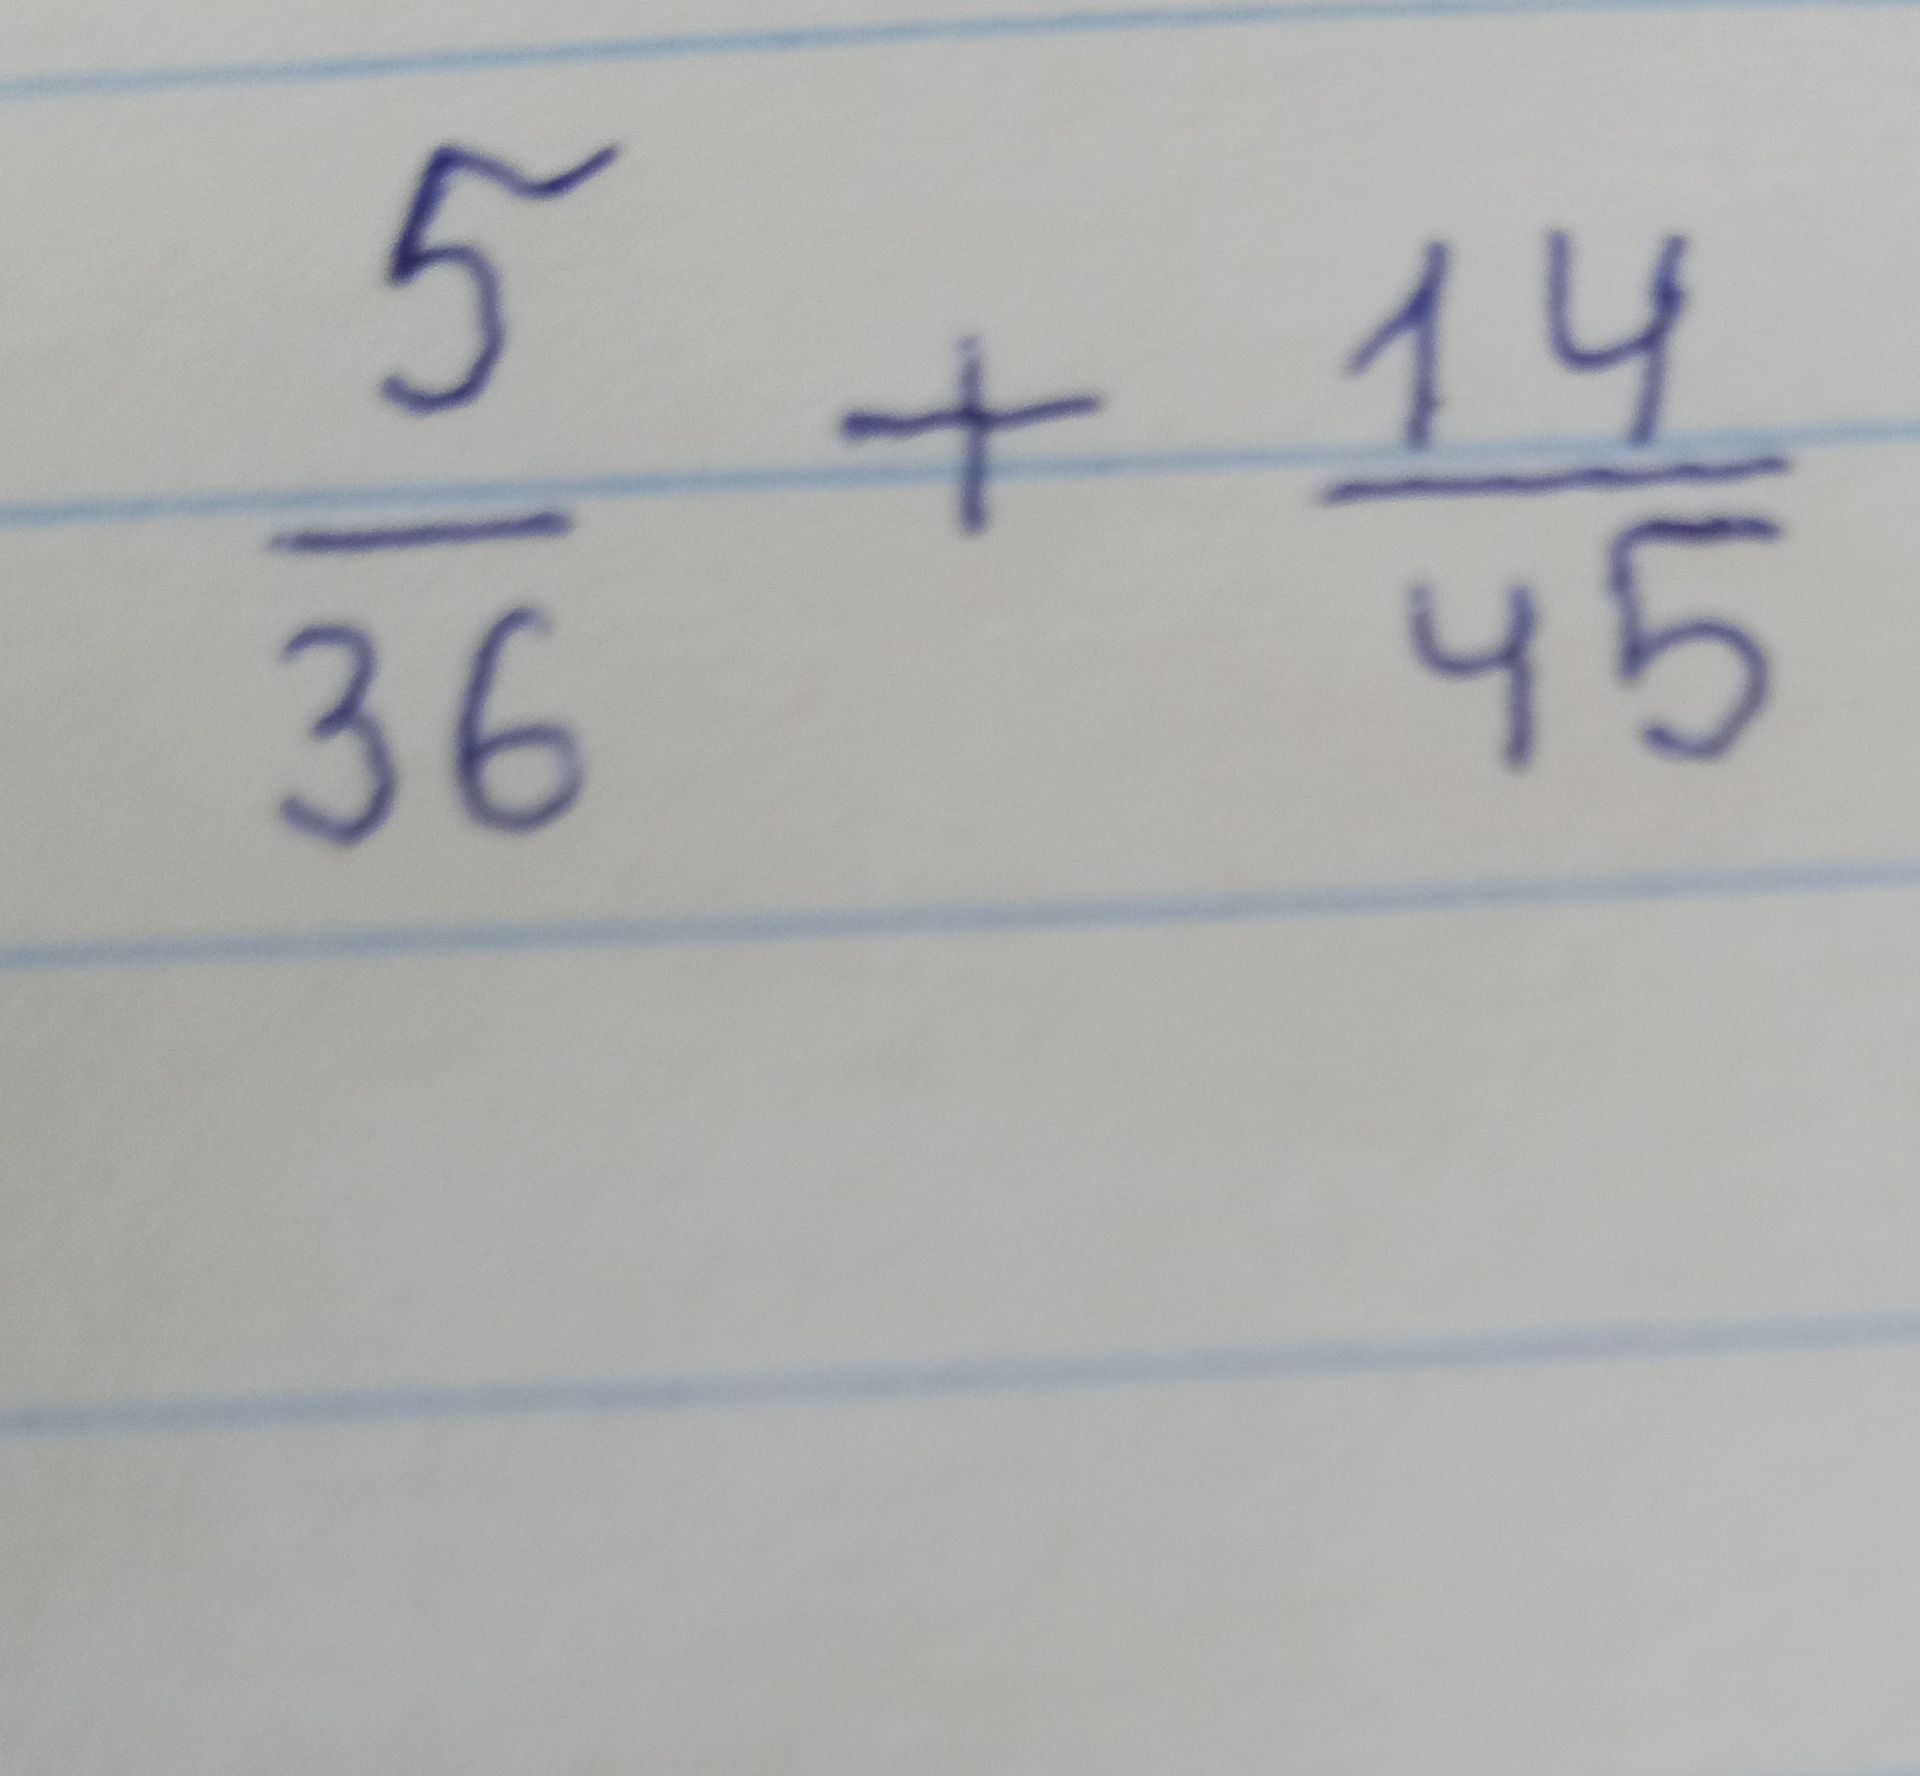 5/36 + 14/45